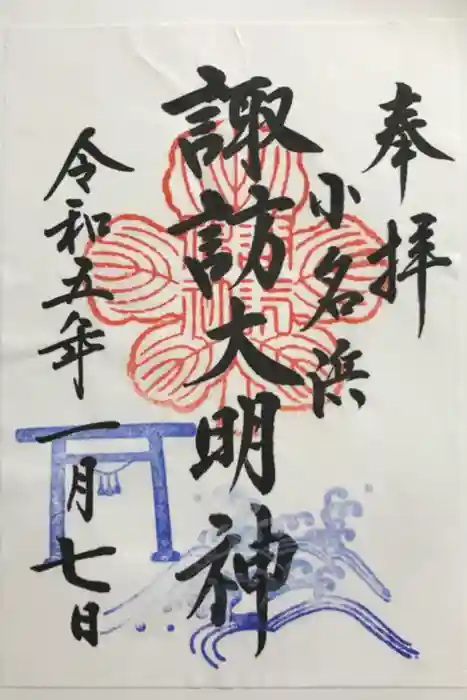 奉拝
小名浜
諏訪大明神
令和五年一月七日